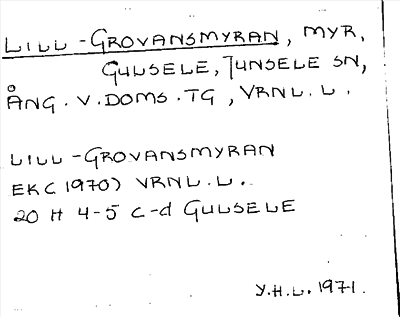 LILL-GROVANSMYRAN, MYR,
GULSELE, JUNSELE SN,
ÅNG. V. DOMS. TG, VRNL.L.
LILL-GROVANSMYRAN
EK(1970) VRNL.L.
20 H 4-5 c-d GULSELE
Y.H.L. 1971.